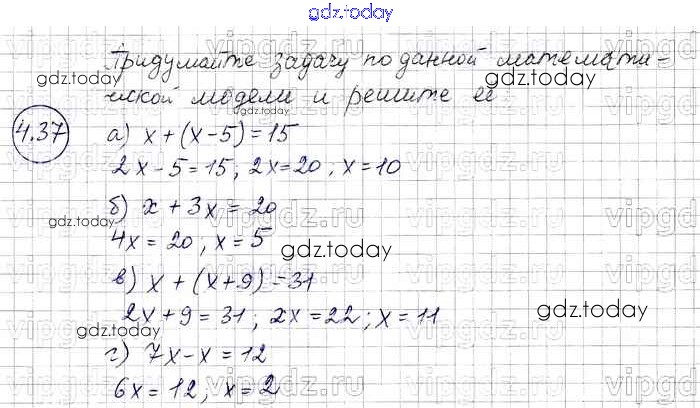 gdz.today
Придумайте задачу по данной математи-
ческой модели и решите её
4.37
а) x + (x - 5) = 15
2x - 5 = 15; 2x = 20, x = 10
б) x + 3x = 20
4x = 20, x = 5
в) x + (x + 9) = 31
2x + 9 = 31; 2x = 22; x = 11
г) 7x - x = 12
6x = 12, x = 2
gdz.today
gdz.today
gdz.today
gdz.today
gdz.today
gdz.today
gdz.today
vipgdz.ru